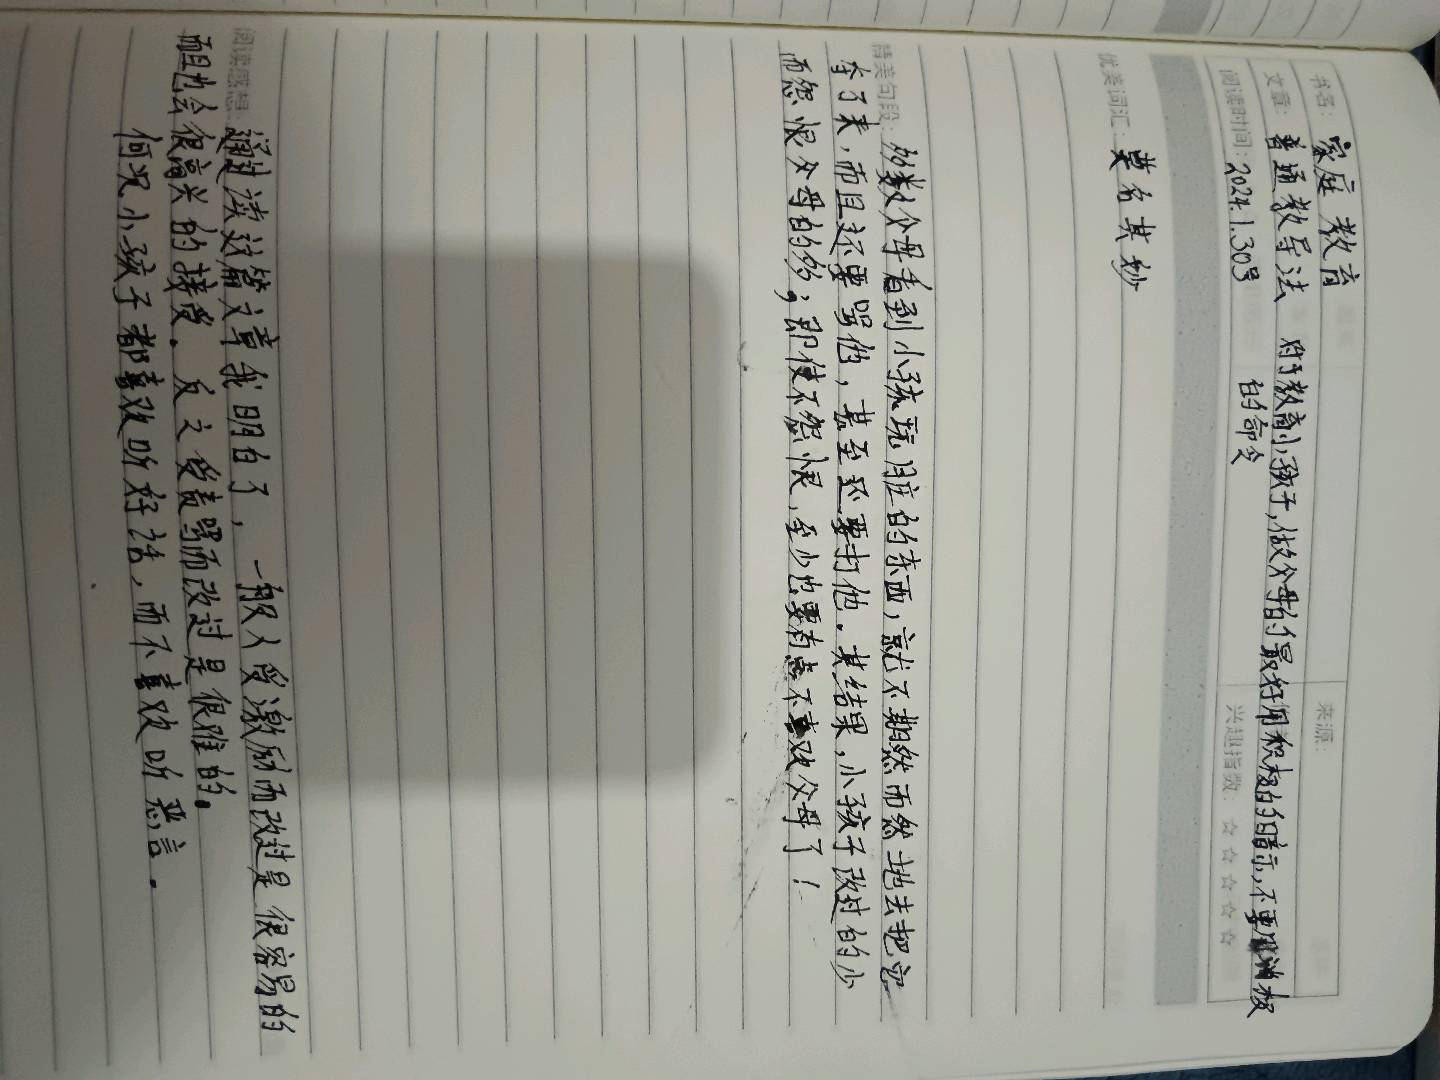 书名: 家庭教育
来源:
文章: 普通教导法 对于教育小孩子,做父母的最好用积极的暗示,不要用消极
的命令
阅读时间: 2024.1.30号
兴趣指数: ☆☆☆☆☆
优美词汇: 莫名其妙
精美句段: 多数父母看到小孩玩肮脏的东西,就不期然而然地去把它
夺了来,而且还要骂他,甚至还要打他。其结果,小孩子改过的少
而怨恨父母的多,即使不怨恨,至少也要有点不喜欢父母了!
阅读感想: 通过读这篇文章我明白了,一般人受激励而改过是很容易的
而且也会很高兴的接受。反之受责骂而改过是很难的。
何况小孩子都喜欢听好话,而不喜欢听恶言。